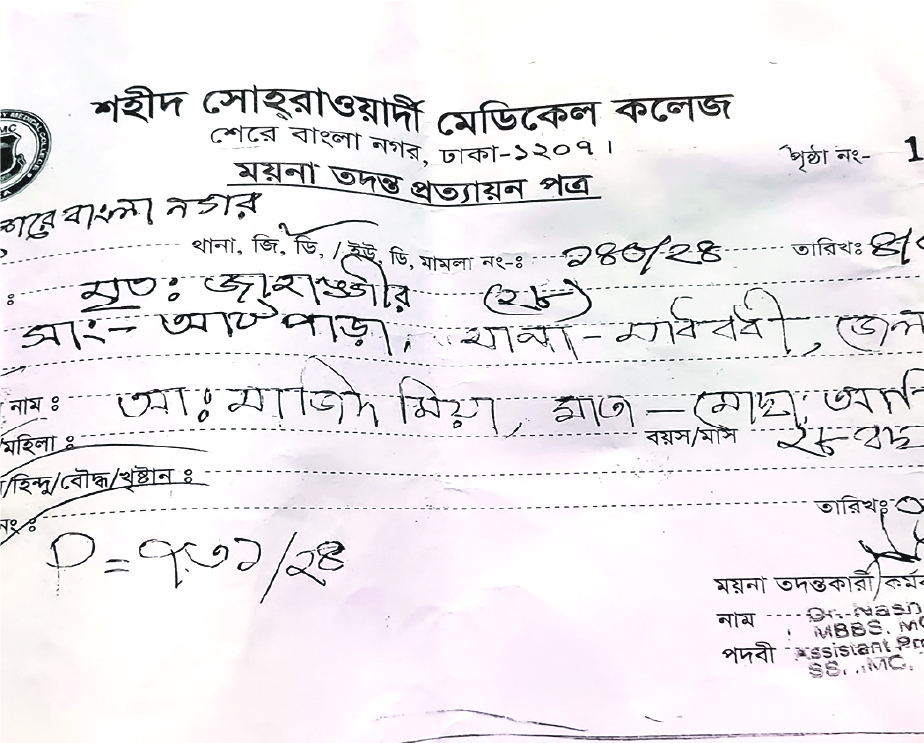 শহীদ সোহ্‌রাওয়ার্দী মেডিকেল কলেজ
শেরে বাংলা নগর, ঢাকা-১২০৭।
পৃষ্ঠা নং- 1
ময়না তদন্ত প্রত্যায়ন পত্র
শেরে বাংলা নগর
থানা, জি, ডি, / ইউ, ডি, মামলা নং-ঃ ২৪৩/২৪ তারিখঃ ৪/
মৃতঃ জাহাঙ্গীর (২৮)
সাং- আটপাড়া, থানা - মাধবদী, জেলা
নাম ঃ আঃ মাজিদ মিয়া, মাতা - মোছাঃ
মহিলা ঃ বয়স/মাস ২৮ বছ
/হিন্দু/বৌদ্ধ/খৃষ্টান ঃ
নং ঃ তারিখঃ
P = ৭৩১/২৪
ময়না তদন্তকারী কর্মক
নাম Dr. Nasr
MBBS. MC
পদবী Assistant Pro
MC.